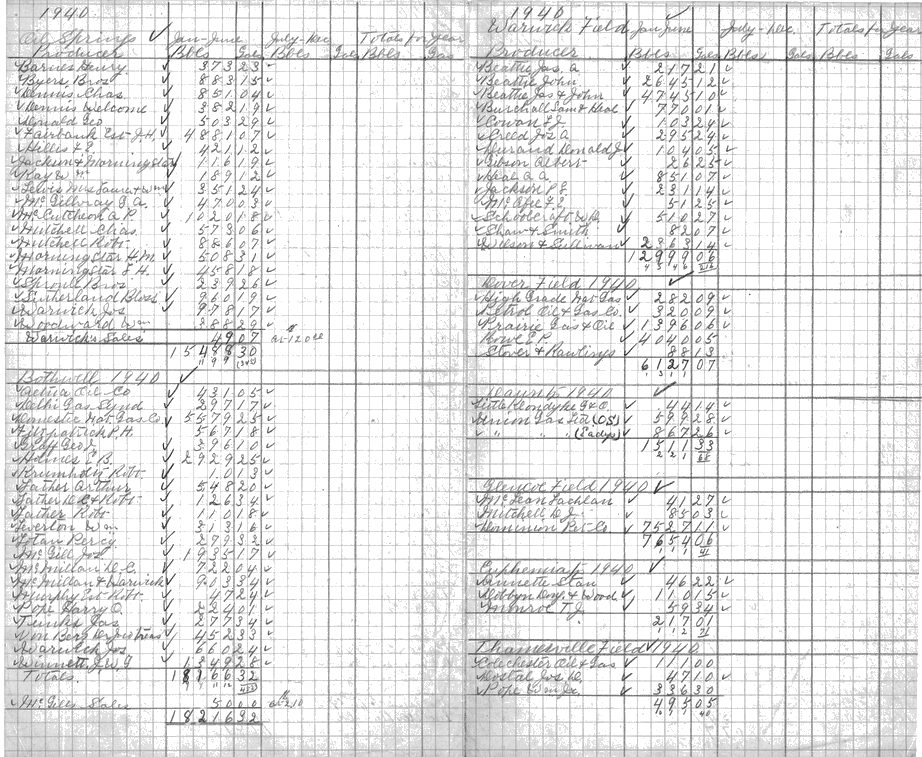 1940
Oil Springs ✓ Jan-June July-Dec Totals for Year
Producer Bbls Gals Bbls Gals Bbls Gals
Barnes Henry 373 23
Byers Bros 883 15
Dennis Chas. 851 04
Dennis Welcome 382 19
Donald Geo 503 29
Fairbank Est J.H. 4881 07
Hillis 421 12
Jackson & Morningstar 116 19
Kay Wm 189 12
351 24
McGillvray G.A. 470 03
McCutcheon A.P. 1020 18
Mitchell Chas. 573 06
Mitchell Robt. 886 07
Morningstar H.M. 508 31
Morningstar F.H. 458 18
Sproule Bros. 239 26
Sutherland Bloss 960 19
Warwick Jos 978 17
Woodward Wm 388 29
Warwick's Sales 49 07
15488 30
Bothwell 1940 ✓
Aetna Oil Co 431 05
Delhi Gas Synd 297 17
Domestic Nat. Gas Co 5579 23
Fitzpatrick P.H. 567 18
Graff Geo. 396 10
Holmes E.B. 2929 25
Krumholtz Robt 10 13
Lather Arthur 548 20
Lather D.C. & Robt 126 34
Lather Robt 110 18
Leverton Wm 313 16
Lotan Percy 279 32
McGill Jos 1935 17
McMillan D.C. 722 04
McMillan & Warwick 903 34
Murphy Est Robt. 47 24
Pope Harry O. 224 01
Tunks Jas 277 34
Von Berg 452 33
Warwick Jos 660 24
Winnett J.W.G. 1349 28
Totals 18166 32
McGill's Sales 50 00
18216 32
1940
Warwick Field Jan-June July-Dec. Totals for Year
Producer Bbls Gals Bbls Gals Bbls Gals
Beattie Jas. A. 217 21
Beattie John 2645 12
Beattie Jas & John 4745 10
Burchall Sam & Neal 770 01
Cowan L.J. 103 24
Creed Jos A. 295 24
Donald J. 104 05
Gibson Albert 26 25
Neal A.A. 851 07
Jackson P.J. 231 14
McAfee F.J. 51 25
Schoolcraft W.H. 510 27
Shaw & Smith 82 07
Wilson & Sullivan 2363 14
12999 06
Dover Field 1940 ✓
High Grade Nat. Gas 282 09
Petrol Oil & Gas Co. 320 09
Prairie Gas & Oil 1396 06
Rowe E.P. 4040 05
Stover & Rawlings 88 13
6127 07
1940 ✓
Little Klondyke G & O. 44 14
Union Gas Ltd (OS) 599 28
" " " (Eadys) 867 26
1511 33
Glencoe Field 1940 ✓
McLean Lachlan 41 27
Mitchell D.J. 85 03
Dominion Pet. Co 7527 11
7654 06
Euphemia Tp 1940 ✓
Annette Stan 46 22
Dobbyn Dry. & Wood 110 15
Munroe T.J. 59 34
217 01
Thamesville Field ✓ 1940
Colchester Oil & Gas 111 00
Jos. D. 47 10
Pope Wm Jr. 336 30
495 05